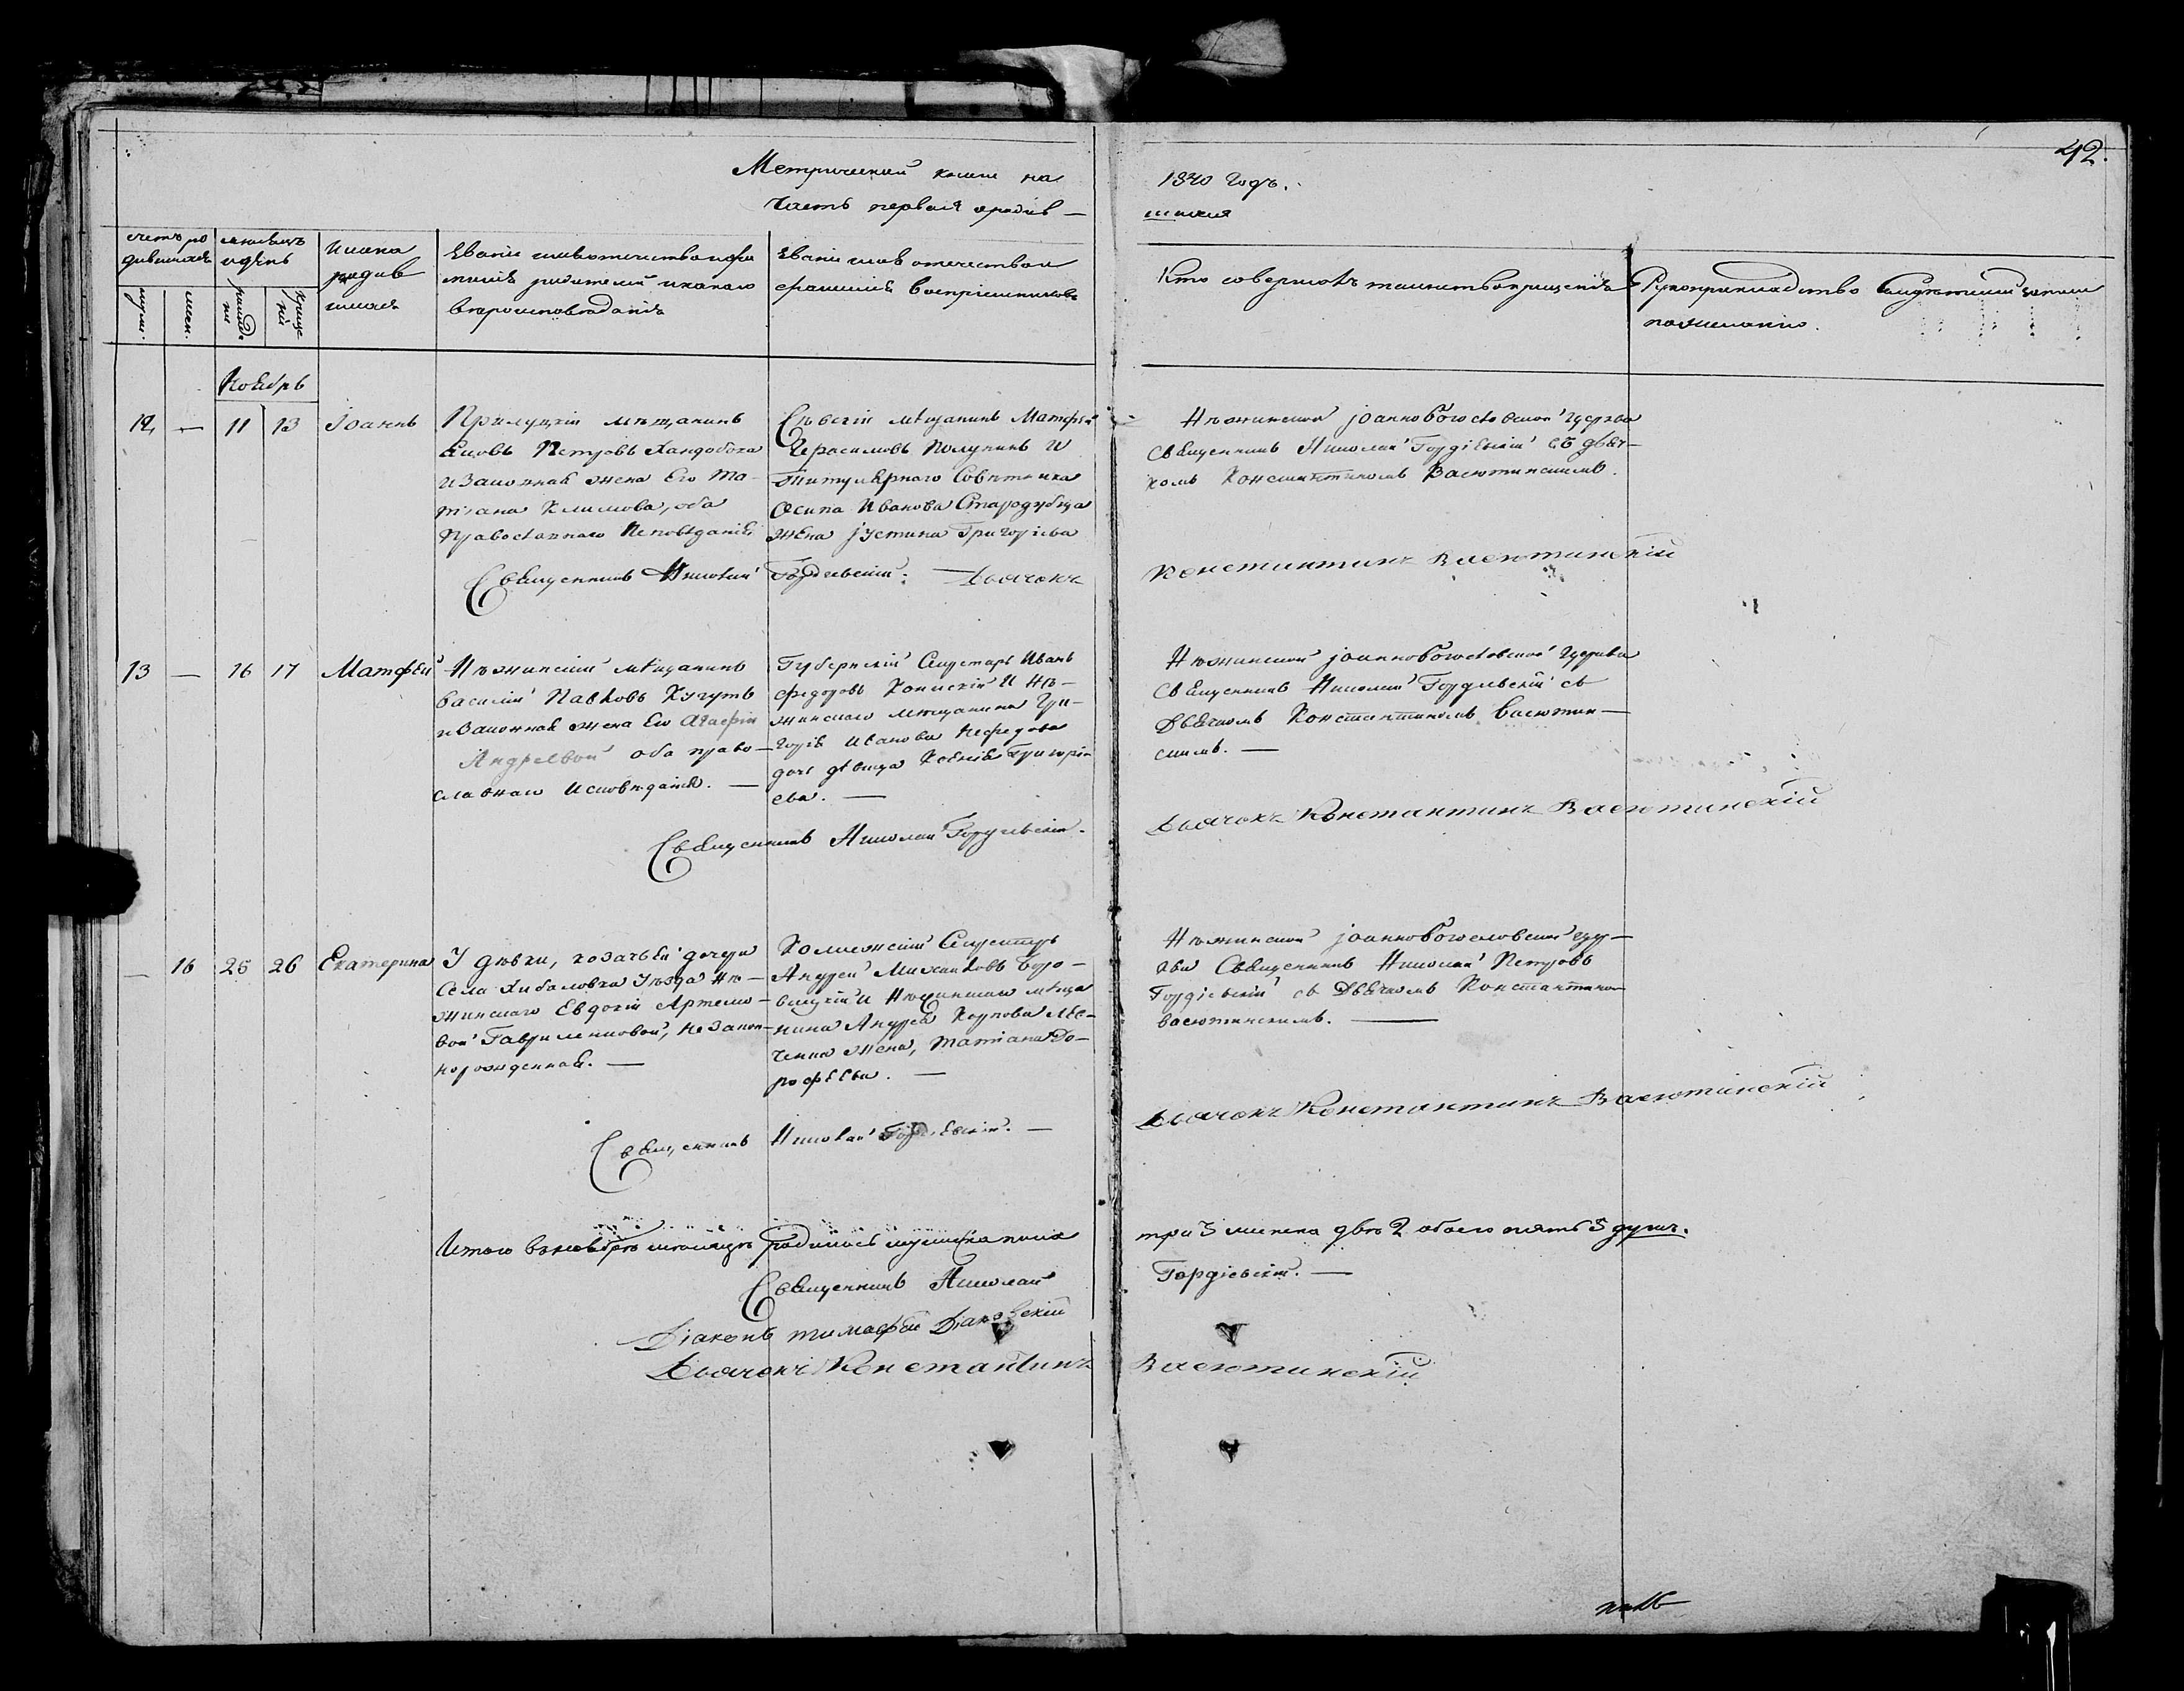 42.
Метрической книги на 1840 годъ.
Часть первая о родив-
шихся
счетъ ро
дившихся
муж.
жен.
мѣсяцъ
и день
рожде
нія
креще
нія
Имена
родив
шихся
Званіе имя отечество и фа
милія родителей и какого
вѣроисповѣданія
Званіе имя отечество и
фамилія воспріемниковъ
Кто совершалъ таинство крещенія
Рукоприкладство свидѣтелей записи
по желанію.
Ноябрь
12 — 11 13 Іоаннъ
Прилуцкій мѣщанинъ
Петровъ Хандобока
и Законная жена Его Та-
тіана Климова, оба
Православнаго Исповѣданія
Сѣвскій мѣщанинъ Матфѣй
Герасимовъ Полунинъ И
Титулярнаго Совѣтника
Осипа Иванова Стародубца
жена Іустина Григоріева
Нѣжинской Іоаннобогословской Церкви
Священникъ Николай Гордіевскій съ дьяч-
комъ Константиномъ Васютинскимъ.
Священникъ Николай Гордіевскій. — Дьячокъ Константинъ Васютинскій
13 — 16 17 Матфей
Нѣжинскій мѣщанинъ
Василій Павловъ Кугутъ
и Законная жена Его Агафія
Андреевой оба право-
славнаго Исповѣданія. —
Губернскій Секретарь Иванъ
Федоровъ Конискій И Нѣ-
жинскаго мѣщанина Гри-
горія Иванова Нефедова
дочь дѣвица Ксенія Григорі-
ева. —
Нѣжинской Іоаннобогословской Церкви
Священникъ Николай Гордіевскій съ
Дьячкомъ Константиномъ Васютин-
скимъ. —
Священникъ Николай Гордіевскій.
Дьячокъ Константинъ Васютинскій
— 16 25 26 Екатерина
У дѣвки, козачьей дочери
Села Хибаловки Уѣзда Нѣ-
жинскаго Евдокіи Артемо-
вой Гавриленковой, не закон-
норожденная. —
Колежскій Секретарь
Андрей Михайловъ Боро-
вицкій И Нѣжинскаго мѣща
нина Андрея Карпова
жена, Татіана До-
рофѣева. —
Нѣжинской Іоаннобогословской цер-
кви Священникъ Николай Петровъ
Гордіевскій съ Дьячкомъ Константином
Васютинскимъ. —
Священникъ Николай Гордіевскій. —
Дьячокъ Константинъ Васютинскій
Итого въ ноябрѣ мѣсяцѣ родилось мужеска пола три 3 женска двѣ 2 обоего пять 5 душъ.
Священникъ Николай Гордіевскій. —
Діаконъ Тимофѣй Діаковскій
Дьячокъ Константинъ Васютинскій